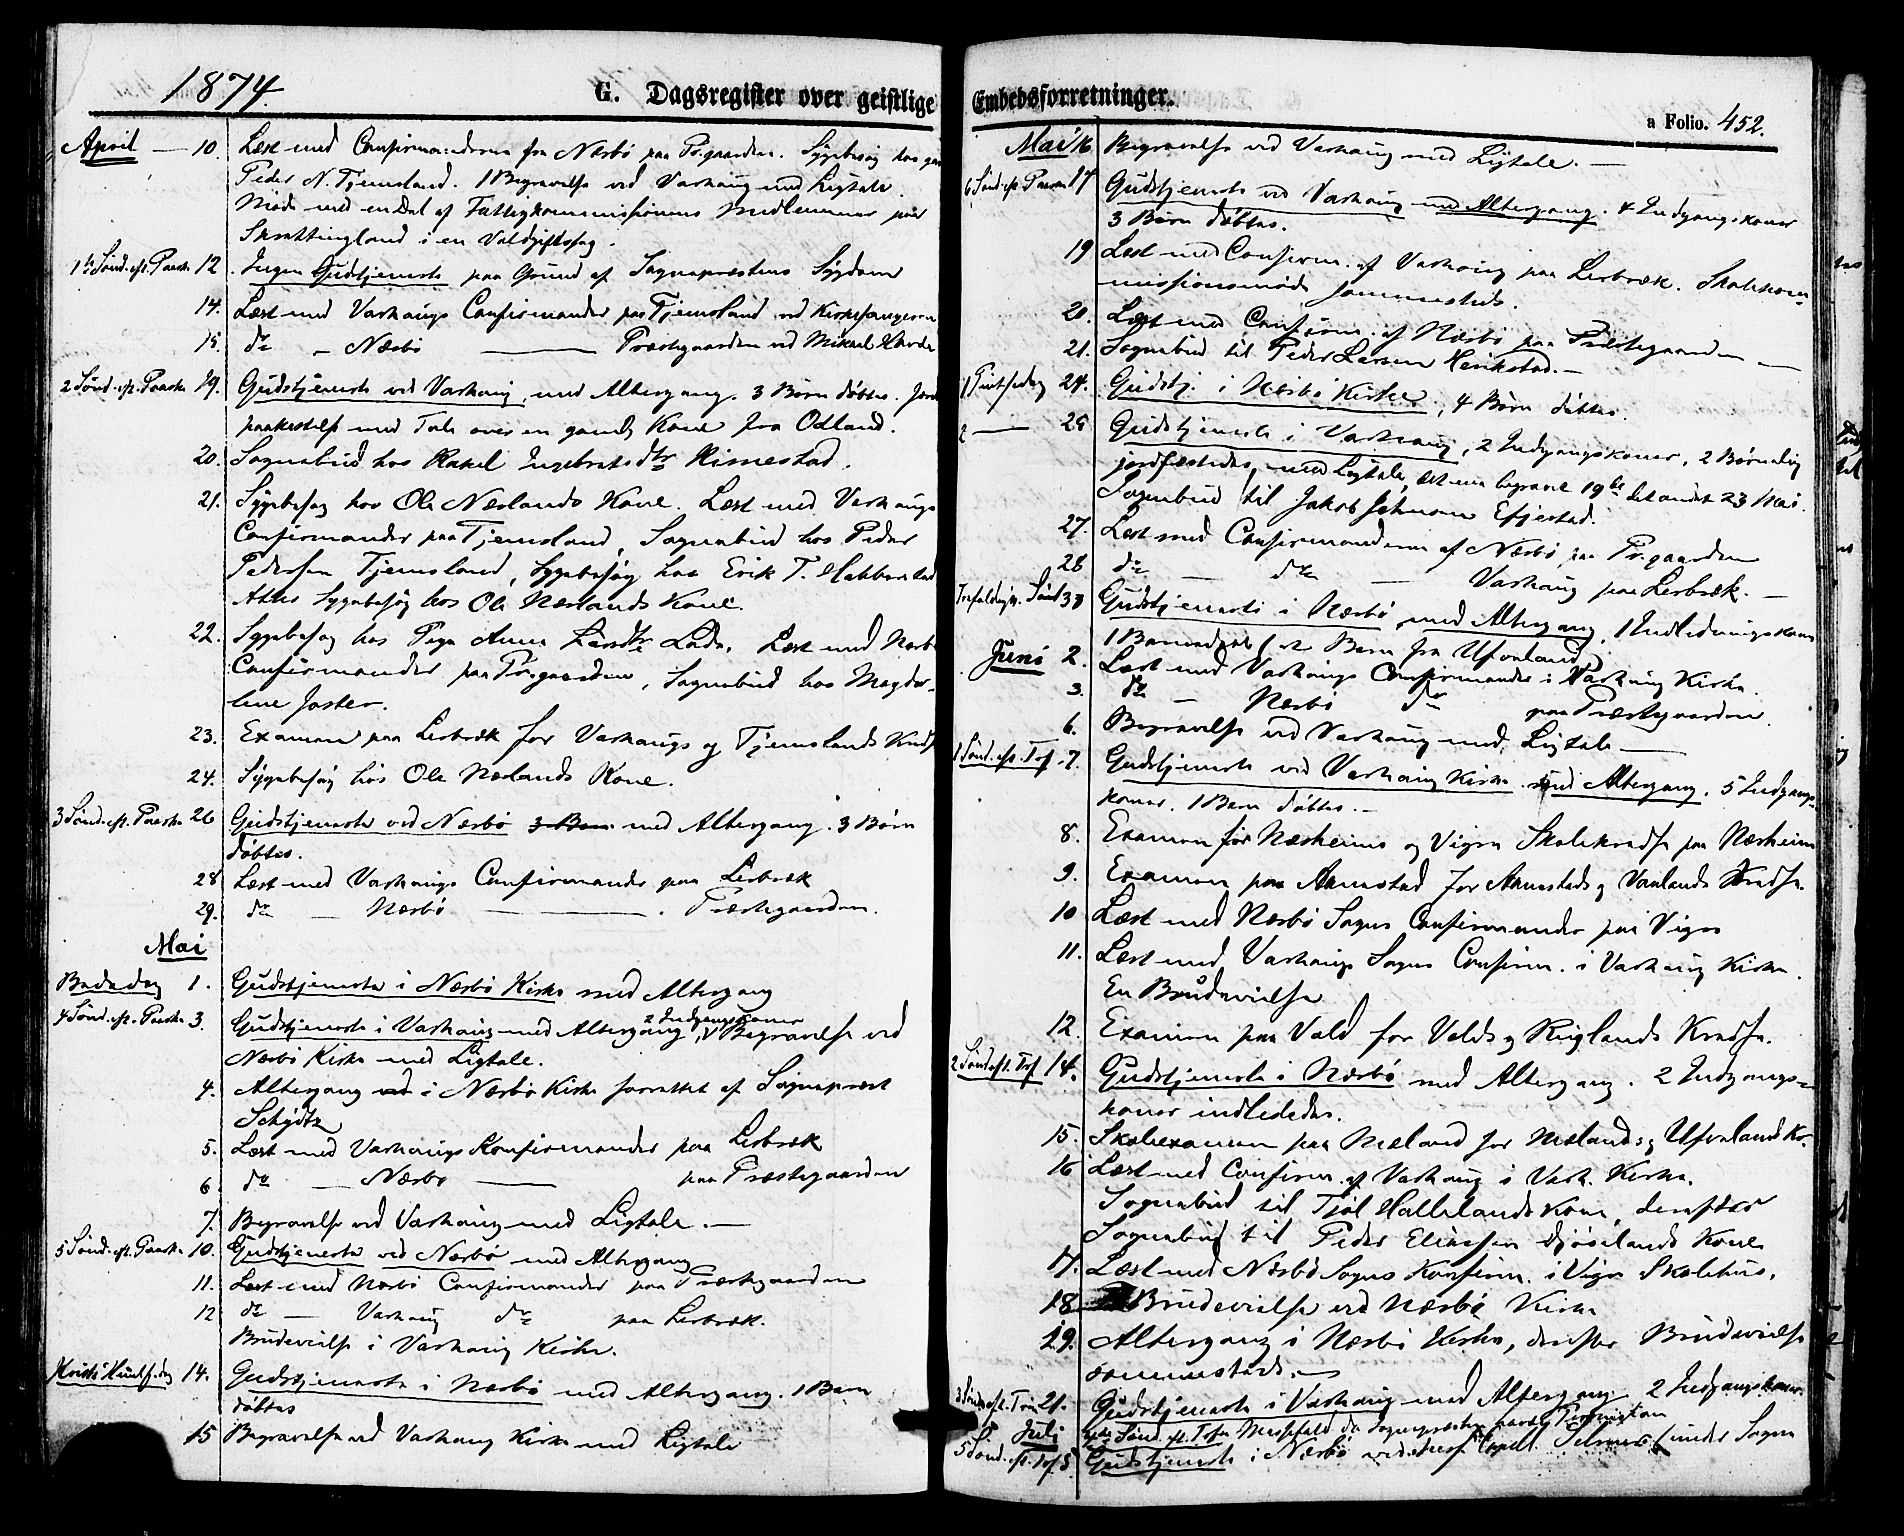 1874.
G. Dagsregister over geistlige
April — 10. Læst med Confirmanderne fra Nærbø paa Pr.gaarden. Sygebesøg hos
Peder N. Tjemsland. 1 Begravelse ved Varhaug med Ligtale.
Møde med en Del af Fattigkommissionens Medlemmer paa
Skrettingland i en Voldgiftssag.
1ste Sønd. eft. Paaske 12. Ingen Gudstjeneste paa Grund af Sognepræstens Sygdom
14. Læst med Varhaugs Confirmander paa Tjemsland ved Kirkesangeren
15. do — Nærbø — Præstegaarden ved Mikael
2 Sønd. eft. Paaske 19. Gudstjeneste ved Varhaug, med Altergang. 3 Børn døbtes. Jord-
paakastelse med Tale over en gammel Kone fra Odland.
20. Sognebud hos Rakel Ingebretsdtr Kimestad.
21. Sygebesøg hos Ole Nærlands Kone. Læst med Varhaugs
Confirmander paa Tjemsland, Sognebud hos Peder
Pedersen Tjemsland, Sygebesøg hos Erik T.
Atter Sygebesøg hos Ole Nærlands Kone.
22. Sygebesøg hos Anna Læst med Nærbø
Confirmander paa Pr.gaarden, Sognebud hos Magda-
lene Joster.
23. Examen paa Lerbræk for Varhaugs og Tjemslands Kreds
24. Sygebesøg hos Ole Nærlands Kone.
3 Sønd. eft. Paaske 26 Gudstjeneste ved Nærbø 3 Børn med Altergang. 3 Børn
døbtes.
28 Læst med Varhaugs Confirmander paa Lerbræk
29. do — Nærbø — Præstegaarden.
Mai
Bededag 1. Gudstjeneste i Nærbø Kirke med Altergang
2 Indgangskoner
4 Sønd. eft. Paaske 3. Gudstjeneste i Varhaug med Altergang, Begravelse ved
Nærbø Kirke med Ligtale.
4. Altergang ved i Nærbø Kirke forrettet af Sognepræst
Schjøtz
5. Læst med Varhaugs Konfirmander paa Lerbræk
6. do — Nærbø — paa Præstegaarden
7. Begravelse ved Varhaug med Ligtale. —
5 Sønd. eft. Paaske 10. Gudstjeneste ved Nærbø med Altergang
11. Læst med Nærbø Confirmander paa Præstegaarden
12 do — Varhaug do paa Lerbræk.
Brudevielse i Varhaug Kirke.
Kristi Himlf.dag 14. Gudstjeneste i Nærbø med Altergang. 1 Barn
døbtes
15 Begravelse ved Varhaug Kirke med Ligtale
Embedsforretninger.
a Folio. 452.
Mai 16 Begravelse ved Varhaug med Ligtale. —
6 Sønd. eft. Paaske 17 Gudstjeneste ved Varhaug med Altergang. 4 Indgangskoner
3 Børn døbtes.
19 Læst med Confirm. af Varhaug paa Lerbræk. Skolekom-
missionsmøde sammesteds.
20. Læst med Confirm. af Nærbø paa Præstegaarden —
21. Sognebud til Peder Larsen Herikstad. —
1 Pintsedag 24. Gudstj. i Nærbø Kirke, 4 Børn døbtes.
2 — 25 Gudstjeneste i Varhaug, 2 Indgangskoner, 2 Børnelig
jordfæstedes med Ligtale, det ene begravet 19de det andet 23 Mai.
Sognebud til Jakob Johnsen
27. Læst med Confirmanderne af Nærbø paa Pr.gaarden
28 do — do — Varhaug paa Lerbræk. —
Trefoldigh. Sønd. Gudstjeneste i Nærbø med Altergang, 1 Indledningskone
1 Barnedaab (et Barn fra Ueland)
Juni 2. Læst med Varhaugs Confirmander i Varhaug Kirke.
3. do — Nærbø do paa Præstegaarden.
6. Begravelse ved Varhaug med Ligtale —
1 Sønd. eft. Tref. 7. Gudstjeneste ved Varhaug Kirke med Altergang. 5 Indgangs-
koner. 1 Barn døbtes. —
8. Examen for Nærheims og Vigre Skolekredse paa Nærheim
9. Examen paa Aanestad for Aanestads og Vanlands Kredse.
10 Læst med Nærbø Sogns Confirmander paa Vigre
11. Læst med Varhaugs Sogns Confirm. i Varhaug Kirke.
En Brudevielse
12. Examen paa Vold for Volds og Ruglands Kredse.
2 Sønd. eft. Tref 14. Gudstjeneste i Nærbø med Altergang. 2 Indgangs-
koner indlededes.
15. Skoleexamen paa Mæland for Mælands og Uelands Kr.
16 Læst med Confirm. af Varhaug i Varh. Kirke.
Sognebud til Hallelands Kone, derefter
Sognebud til Peder Eliassen Kone
17. Læst med Nærbø Sogns Konfirm. i Vigre Skolehus.
18 Brudevielse ved Nærbø Kirke
19. Altergang i Nærbø Kirke, derefter Brudevielse
sammesteds. —
3 Sønd. eft. Tri 21. Gudstjeneste i Varhaug med Altergang 2 Indgangskoner.
Juli 4de Sønd. eft. Tref. Messefald da Sognepræsten havde Permission
5 Sønd. eft. Tref 5 Gudstjeneste i Nærbø ved Capell. (under Sogne